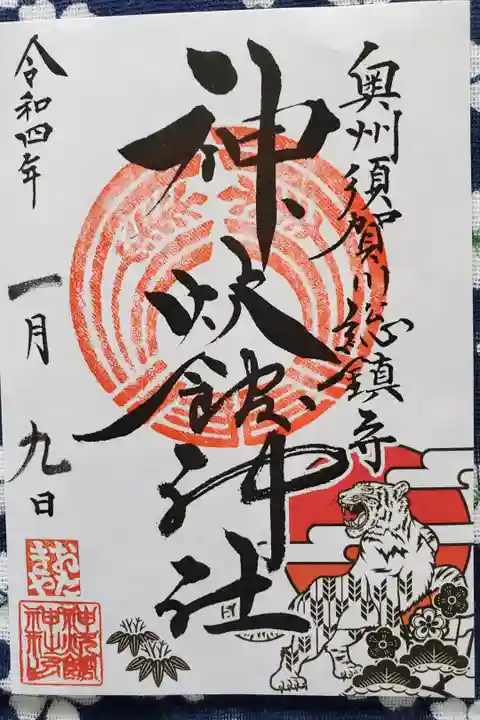 奥州須賀川総鎮守
神炊館神社
令和四年
一月九日
おたきや
神炊館神社